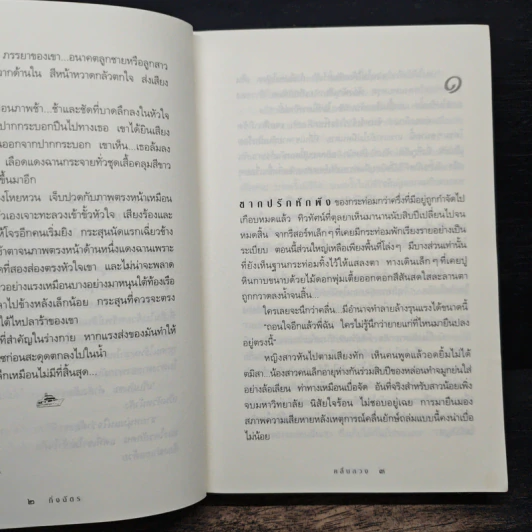 ภรรยาของเขา...อนาคตลูกชายหรือลูกสาว
สีหน้าหวาดกลัวตกใจ ส่งเสียง
ช้าและชัดที่บาดลึกลงในหัวใจ
ปากกระบอกปืนไปทางเธอ เขาได้ยินเสียง
ออกจากปากกระบอก เขาเห็น...เธอล้มลง
เลือดแดงฉานกระจายทั่วชุดเสื้อคลุมสีขาว
ขึ้นมาอีก
โหยหวน เจ็บปวดกับภาพตรงหน้าเหมือน
เจาะทะลวงเข้าขั้วหัวใจ เสียงร้องและ
ให้โจรอีกคนเริ่มยิง กระสุนนัดแรกเฉี่ยวข้าง
ภาพตรงหน้าด้านหนึ่งแดงฉานเพราะ
ที่สองส่องตรงหัวใจเขา และไม่น่าจะพลาด
แรงเหมือนบางอย่างมาหนุนใต้ท้องเรือ
ไปข้างหลังเล็กน้อย กระสุนที่ควรจะตรง
ใต้ไหปลาร้าของเขา
ที่สำคัญในร่างกาย หากแรงส่งของมันทำให้
ก่อนสะดุดตกลงไปในน้ำ
เหมือนไม่มีที่สิ้นสุด...
๒ กิ่งฉัตร
๑
ซากปรักหักพัง ของกระท่อมกว่าครึ่งที่มีอยู่ถูกกำจัดไป
เกือบหมดแล้ว ทิวทัศน์ที่ตุลยาเห็นมานานนับสิบปีเปลี่ยนไปจน
หมดสิ้น จากรีสอร์ทเล็กๆ ที่เคยมีกระท่อมพักเรียงรายอย่างเป็น
ระเบียบ ตอนนี้ส่วนใหญ่เหลือเพียงพื้นที่โล่งๆ มีบางส่วนเท่านั้น
ที่ยังเห็นฐานกระท่อมทิ้งไว้ให้แสลงตา ทางเดินเล็กๆ ที่เคยปู
หินกาบขนาบด้วยไม้ดอกพุ่มเตี้ยออกดอกสีสันสดใสละลานตา
ถูกกวาดลงน้ำจนสิ้น...
ใครเลยจะนึกว่าคลื่น...มีอำนาจทำลายล้างรุนแรงได้ขนาดนี้
“ถอนใจอีกแล้วพี่ฉัน ใครไม่รู้นึกว่ายายแก่ที่ไหนมายืนปลง
อยู่ตรงนี้”
หญิงสาวหันไปตามเสียงทัก เห็นคนพูดแล้วอดยิ้มไม่ได้
ตมิสา น้องสาวคนเล็กอายุห่างกันร่วมสิบปีของหล่อนทำจมูกย่นใส่
อย่างล้อเลียน ท่าทางเหมือนเบื่อจัด อันที่จริงสำหรับสาวน้อยเพิ่ง
จบมหาวิทยาลัย นิสัยใจร้อน ไม่ชอบอยู่เฉย การมายืนมอง
สภาพความเสียหายหลังเหตุการณ์คลื่นยักษ์ถล่มแบบนี้คงน่าเบื่อ
ไม่น้อย
คลื่นลวง ๓